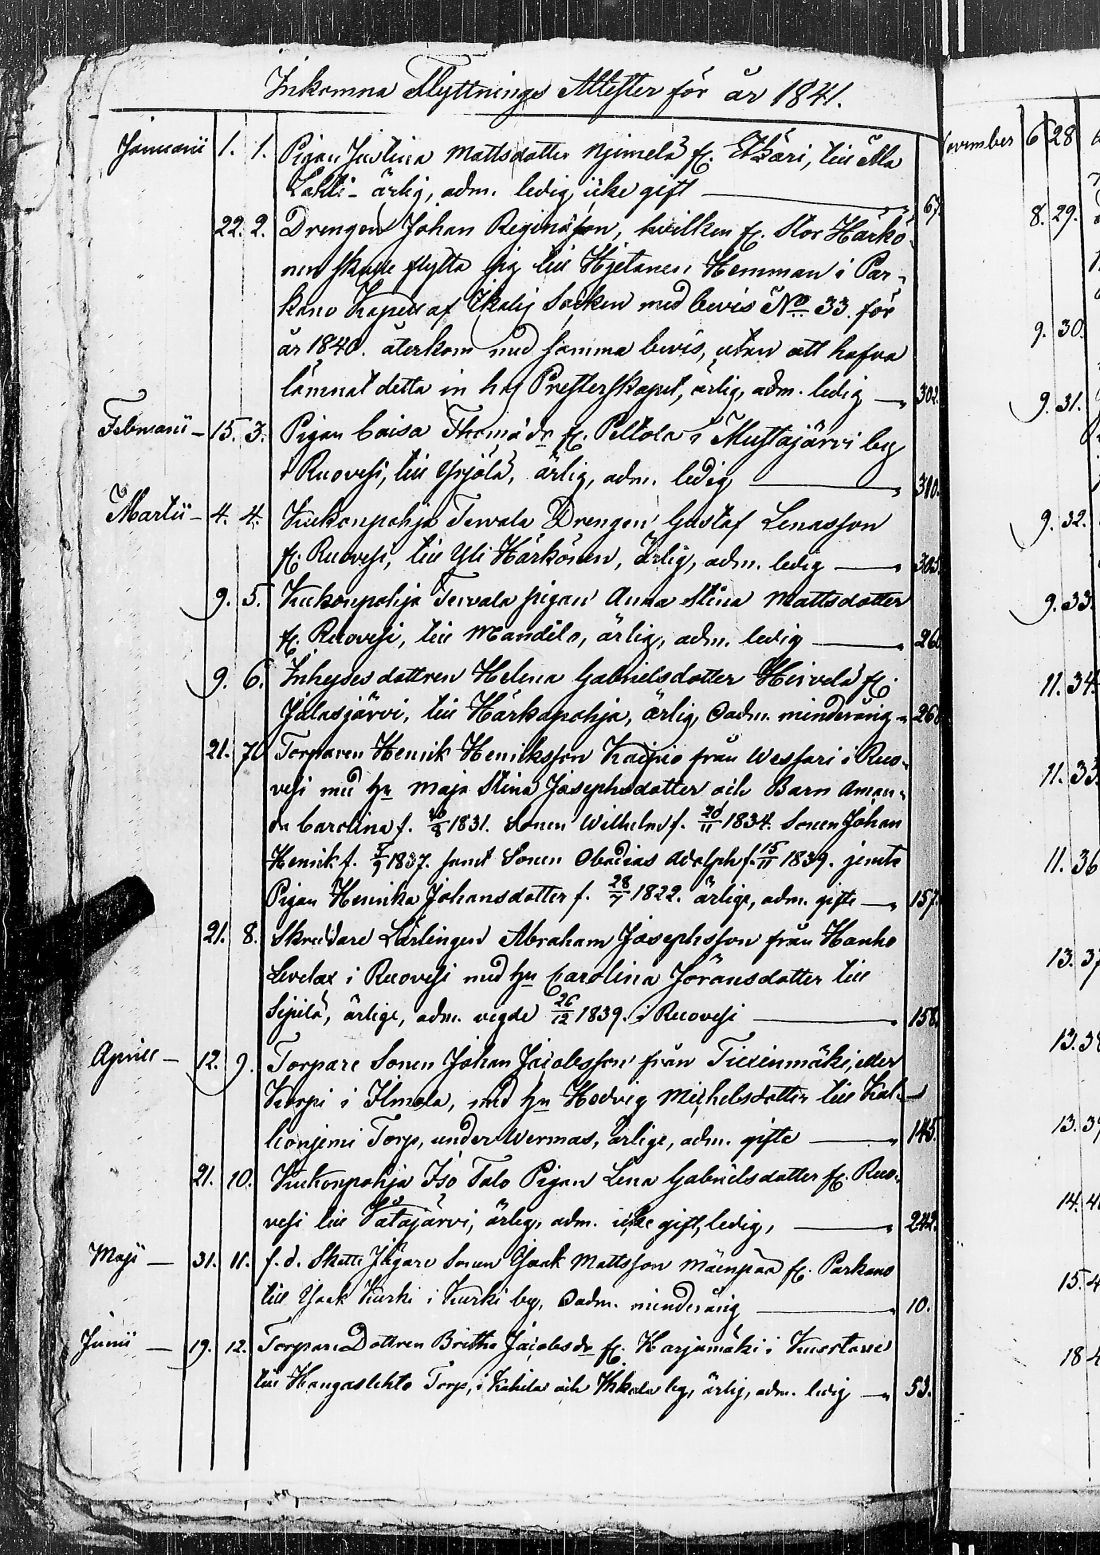 Inkomna Flyttnings Attester för år 1841.
Januarii 1. 1. Pigan Justina Mattsdotter Njemelä fr. Etzäri, till Ala
Lahti - ärlig, adm. ledig, icke gift — 67.
22. 2. Drengen Johan Reginasson, hvilken fr. Stor Härkö-
nen skulle flytta sig till Hjetanen Hemman i Par-
kano Kapell af Ikalis Socken med bevis No 33. för
år 1840. återkom med samma bevis, utan att hafva
lämnat detta in hos Presterskapet, ärlig, adm. ledig — 302.
Februarii — 15. 3. Pigan Caisa Thomädr fr. Peltola i Mustajärvi by
i Ruovesi, till Yrjölä, ärlig, adm. ledig — 310.
Martii — 4. 4. Kukonpohja Tervala Drengen Gustaf Lenasson
fr. Ruovesi, till Yli Härkönen, ärlig, adm. ledig — 303.
9. 5. Kukonpohja Tervala pigan Anna Stina Mattsdotter
fr. Ruovesi, till Mandila, ärlig, adm. ledig — 26
9. 6. Inhyses dottren Helena Gabrielsdotter Heivelä fr.
Jalasjärvi, till Härkäpohja, ärlig, Oadm. minderårig — 26
21. 7. Torparen Henrik Henriksson Kaipio från Wessari i Ruo-
vesi med hu Maja Stina Josephsdotter och Barn Aman-
da Carolina f. 1831. Sonen Wilhelm f. 20/11 1834. Sonen Johan
Henrik f. 1837. samt Sonen Obadias Adolph f. 15/11 1839. jemte
Pigan Henrika Johansdotter f. 28/7 1822. ärlige, adm. gifte — 157.
21. 8. Skreddare Lärlingen Abraham Josephsson från Hanho
Levelax i Ruovesi med hu Carolina Jöransdotter till
Sipilä, ärlige, adm. vigde 26/12 1839. i Ruovesi — 158.
Aprill — 12. 9. Torpare Sonen Johan Jacobsson från Tiixinmäki, eller
Korpi i Ilmola, med hu Hedvig Michelsdotter till Kal-
lionjemi Torp, under Wermas, ärlige, adm. gifte — 145.
21. 10. Kukonpohja Iso Talo Pigan Lena Gabrielsdotter fr. Ruo-
vesi till Vätäjärvi, ärlig, adm. icke gift, ledig, — 242.
Maji — 31. 11. f. d. Skatte Jägare Sonen Isaak Mattsson Mäenpää fr. Parkano
till Isaak Kurki i Kurki by, Oadm. minderårig — 10.
Junii — 19. 12. Torpare Dottren Britha Jacobsdr fr. Harjamäki i Kuortane
till Hangaslehto Torp, i Kihila och by, ärlig, adm. ledig — 53.
November 6 28
8. 29.
9. 30.
9. 31.
9. 32.
9. 33.
11. 34.
11. 35.
11. 36
13. 37
13. 38
13. 39
14. 4
15. 4
18 4